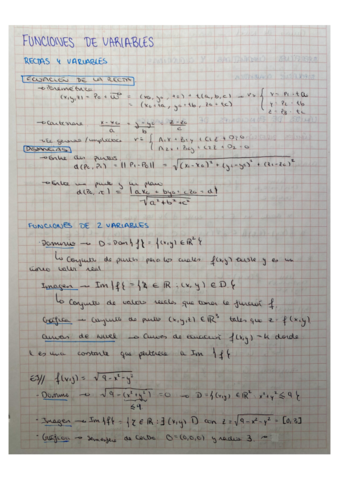 FUNCIONES DE VARIABLES
RECTAS Y VARIABLES
ECUACIÓN DE LA RECTA
→ Paramétrica
(x,y,z) = P₀ + t = (x₀, y₀, z₀) + t(a, b, c) → r =
= (x₀+ta, y₀+tb, z₀+tc)
→ Continua x-x₀/a = y-y₀/b = z-z₀/c
→ Ec general/implícitas r =
Distancias
→ Entre dos puntos
d(P₁, P₀) = || P₁-P₀ || = √(x₁-x₀)² + (y₁-y₀)² + (z₁-z₀)²
→ Entre un punto y un plano
√a²+b²+c²
FUNCIONES DE 2 VARIABLES
- Dominio → D = Dom {f} = {(x,y) ∈ ℝ²}
↳ Conjunto de puntos para los cuales f(x,y) existe y es un
único valor real
- Imagen → Im {f} = {z ∈ ℝ · (x,y) ∈ D}
↳ Conjunto de valores reales que toma la función f
- Gráfica → conjunto de puntos (x,y,z) ∈ ℝ³ tales que z = f(x,y)
- Curvas de nivel → Curvas de ecuación f(x,y) = k donde
k es una constante que pertenece a Im {f}
EJ// f(x,y) = √9-x²-y²
- Dominio → √9-(x²+y²) → D = {(x,y) ∈ ℝ² : x²+y² ≤ 9}
- Imagen → Im {f} = {z ∈ ℝ : ∃ (x,y) con z = √9-x²-y² = [0,3]
- Gráfica → de centro O=(0,0,0) y radio 3.